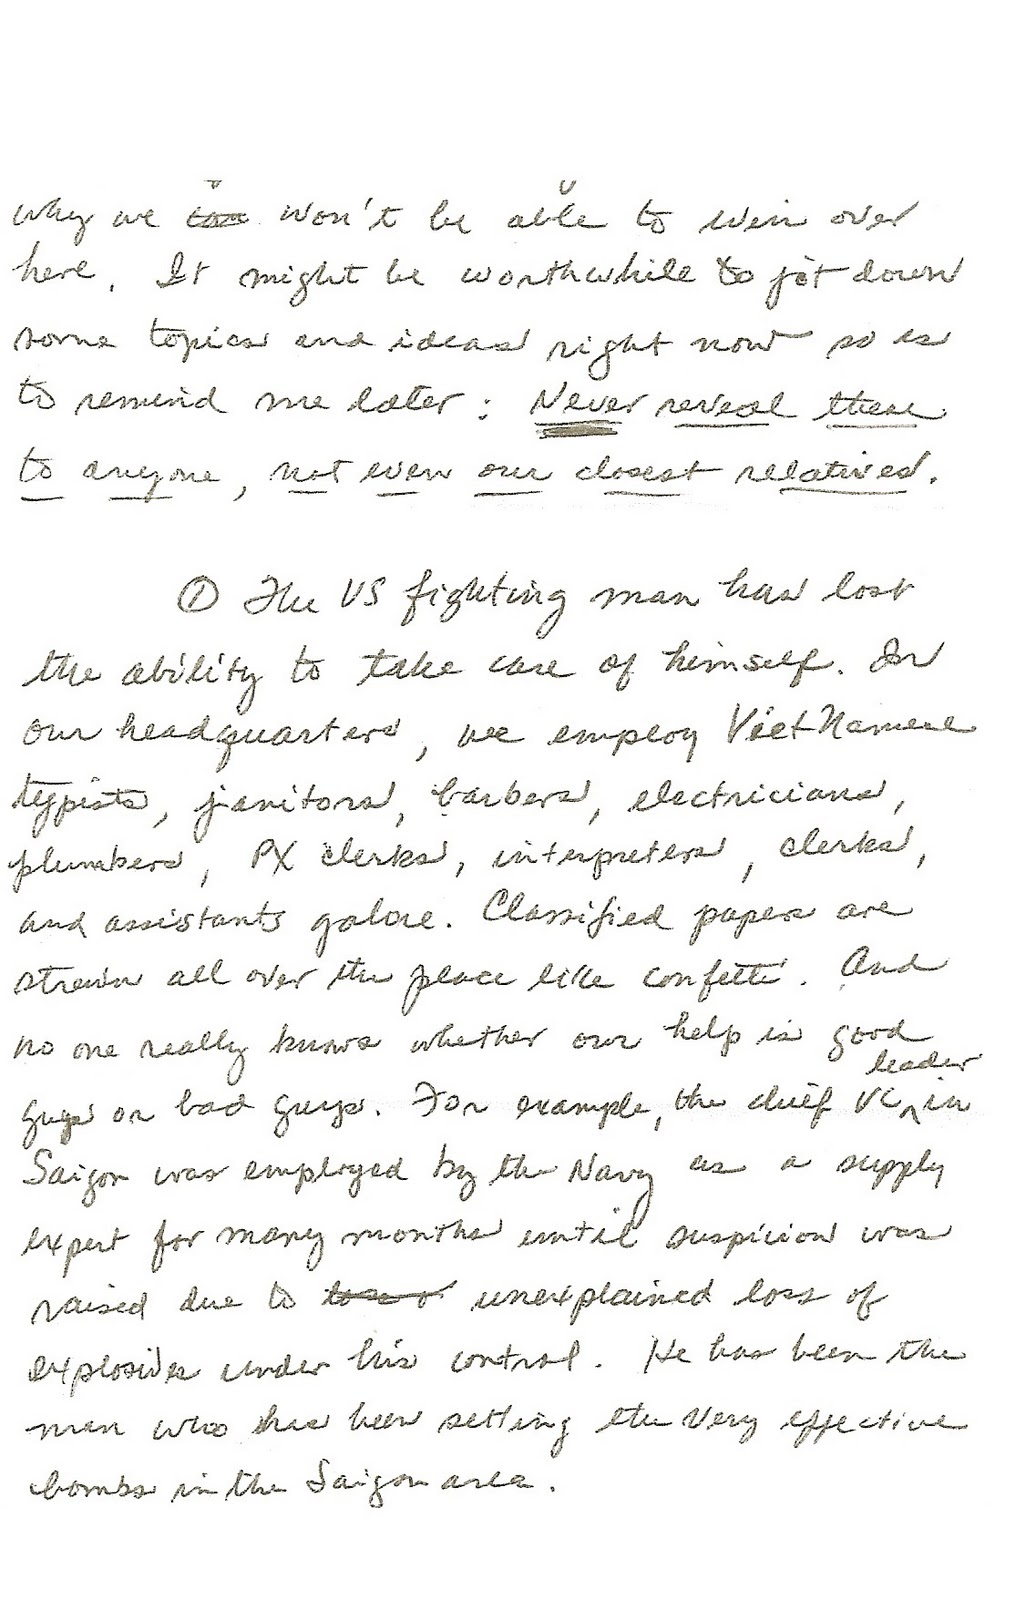 why we won't be able to win over
here. It might be worthwhile to jot down
some topics and ideas right now so as
to remind me later: Never reveal these
to anyone, not even our closest relatives.
① The US fighting man has lost
the ability to take care of himself. In
our headquarters, we employ Viet Namese
typists, janitors, barbers, electricians,
plumbers, PX clerks, interpreters, clerks,
and assistants galore. Classified papers are
strewn all over the place like confetti. And
no one really knows whether our help is good
guys or bad guys. For example, the chief VC leader in
Saigon was employed by the Navy as a supply
expert for many months until suspicion was
raised due to unexplained loss of
explosives under his control. He has been the
man who has been setting the very effective
bombs in the Saigon area.